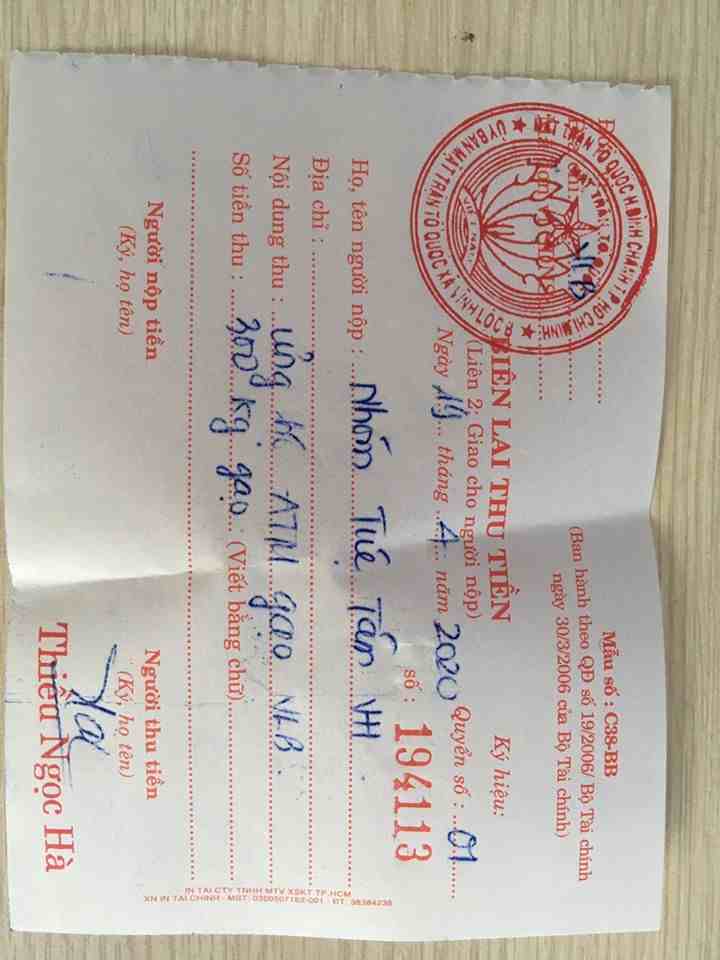 Mẫu số : C38-BB
(Ban hành theo QĐ số 19/2006/ Bộ Tài chính
ngày 30/3/2006 của Bộ Tài chính)
VLB
BIÊN LAI THU TIỀN
(Liên 2: Giao cho người nộp)
Ngày 19 tháng 4 năm 2020
Ký hiệu:
Quyển số : 01
số : 194113
Họ, tên người nộp : Nhóm Tuệ Tâm VH
Địa chỉ :
Nội dung thu : ủng hộ ATM gạo VLB.
Số tiền thu : 300 kg gạo (Viết bằng chữ)
Người nộp tiền
(Ký, họ tên)
Người thu tiền
(Ký, họ tên)
Thiều Ngọc Hà
IN TẠI CTY TNHH MTV XSKT TP.HCM
XN IN TÀI CHÍNH - MST: 0300507182-001 - ĐT: 38384238